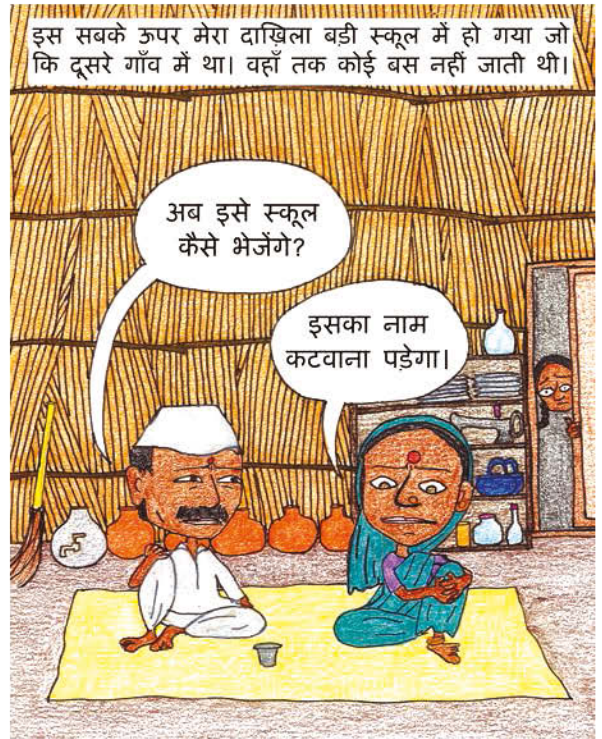 इस सबके ऊपर मेरा दाख़िला बड़ी स्कूल में हो गया जो
कि दूसरे गाँव में था। वहाँ तक कोई बस नहीं जाती थी।
अब इसे स्कूल
कैसे भेजेंगे?
इसका नाम
कटवाना पड़ेगा।